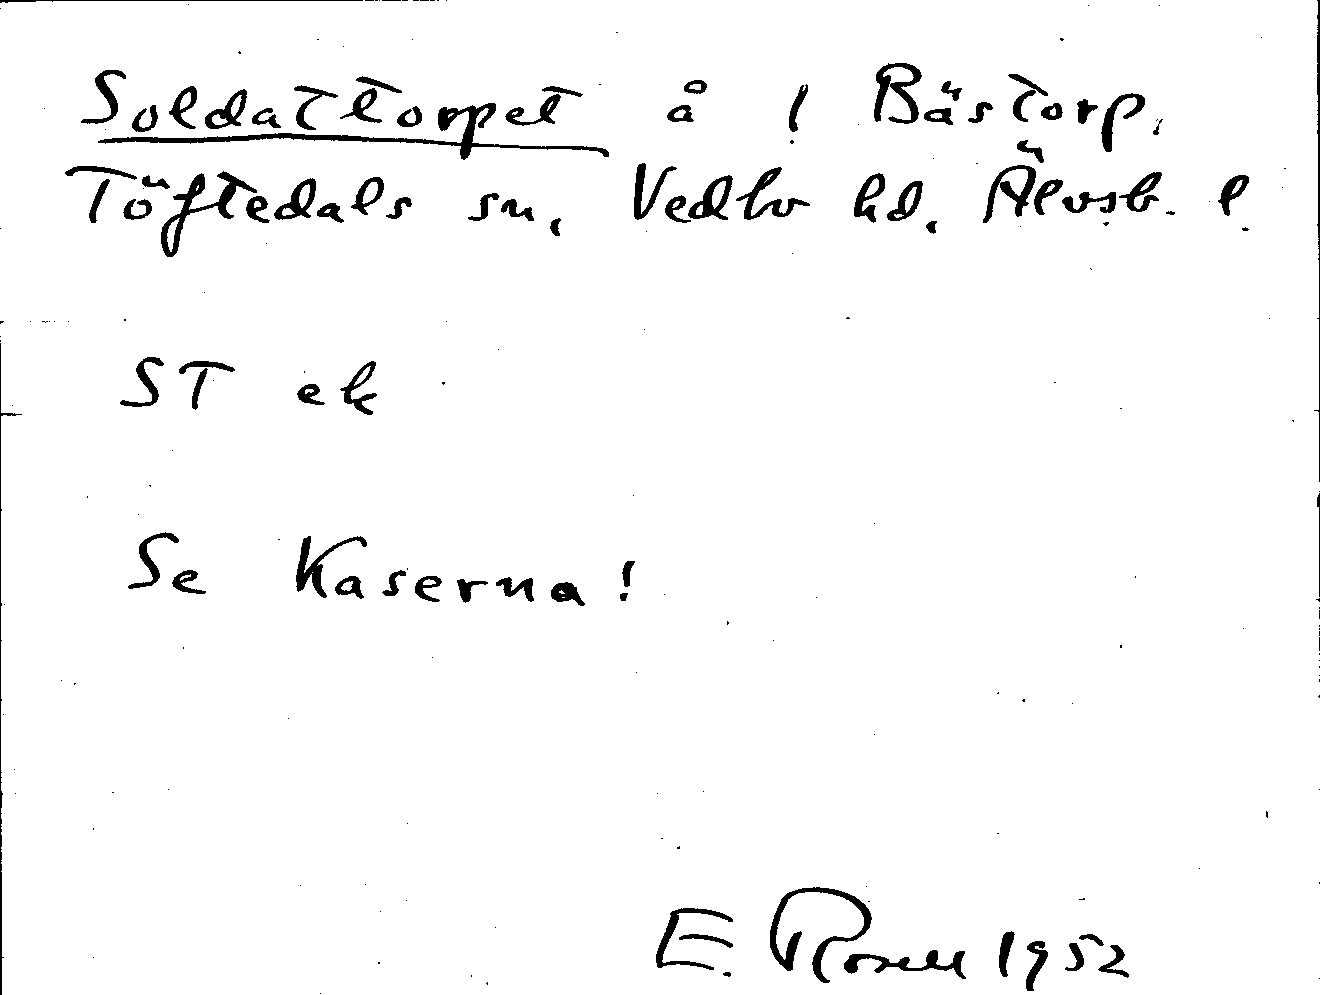 Soldattorpet å 1 Bästorp,
Töftedals sn, Vedbo hd, Älvsb. l.
ST ek
Se Kaserna!
E. Rosell 1952